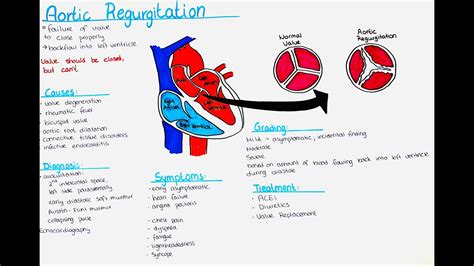 Aortic Regurgitation
= failure of valve
to close properly
→ backflow into left ventricle
Valve should be closed,
but can't
Causes:
- valve degeneration
- rheumatic fever
- bicuspid valve
- aortic root dilatation
- connective tissue disorders
- infective endocarditis
Diagnosis:
- auscultation:
2nd intercostal space,
left side parasternally
early diastolic soft murmur
Austin-Flint murmur
- collapsing pulse
- Echocardiography
Normal
Valve
Aortic
Regurgitation
Left Atrium
Right
Atrium
Left Ventricle
Right Ventricle
Symptoms:
- early asymptomatic
- heart failure
- angina pectoris
- chest pain
- dyspnea
- fatigue
- lightheadedness
- syncope
Grading:
Mild = asymptomatic, incidental finding
Moderate
Severe
based on amount of blood flowing back into left ventricle
during diastole
Treatment:
- ACEi
- Diuretics
- Valve Replacement